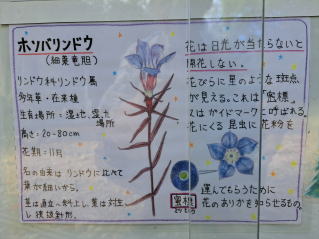 ホソバリンドウ
(細葉竜胆)
リンドウ科リンドウ属
多年草・在来種
生育場所:湿地、湿った
場所
高さ:20~80cm
花期:11月
名の由来はリンドウに比べて
葉が細いから。
茎は直立~斜上し、葉は対生
し披針形。
花は日光が当たらないと
開花しない。
花びらに星のような斑点
が見える。これは「蜜標」
又はガイドマークと呼ばれる。
花にくる昆虫に花粉を
蜜標
運んでもらうために
花のありかを知らせるもの。